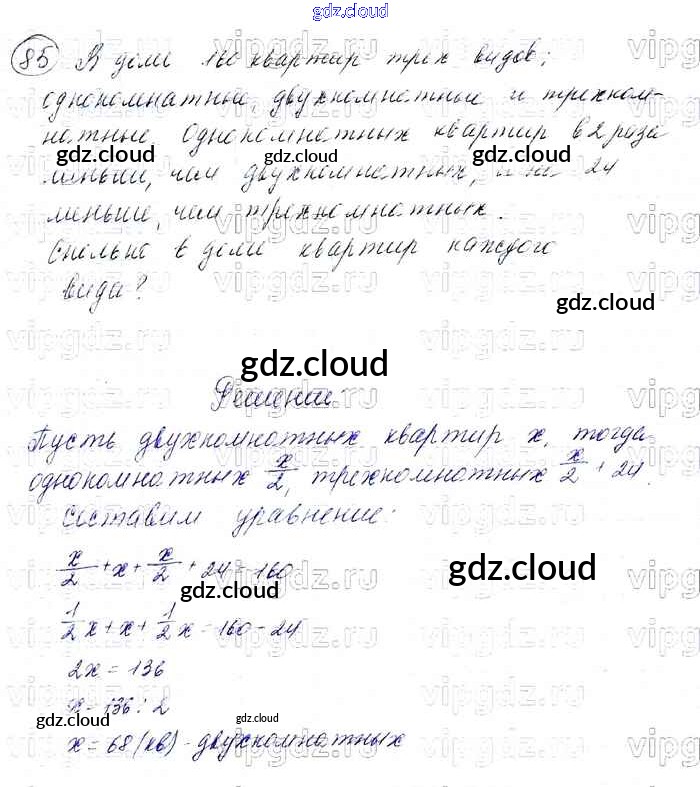 gdz.cloud
85 В доме 160 квартир трех видов:
однокомнатные, двухкомнатные и трехком-
натные. Однокомнатных квартир в 2 раза
gdz.cloud gdz.cloud gdz.cloud
меньше, чем двухкомнатных, и на 24
меньше, чем трехкомнатных.
Сколько в доме квартир каждого
вида?
gdz.cloud
gdz.cloud
Решение:
Пусть двухкомнатных квартир x, тогда
однокомнатных x/2, трехкомнатных x/2 + 24.
Составим уравнение:
x/2 + x + x/2 + 24 = 160
gdz.cloud
gdz.cloud
1/2x + x + 1/2x = 160 - 24
2x = 136
x = 136 : 2
gdz.cloud gdz.cloud
x = 68 (кв) - двухкомнатных